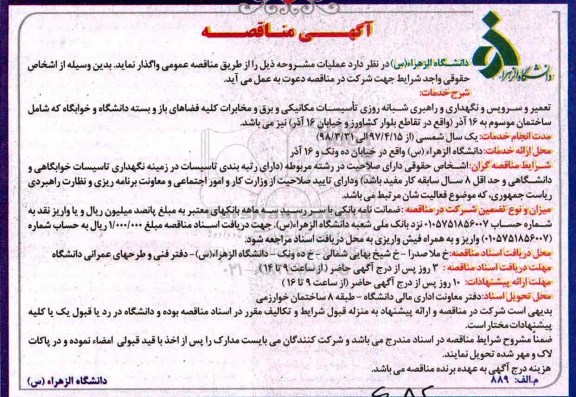 آگهـی مناقصـه
دانشگاه الزهرا(س)
دانشگاه الزهراء(س) در نظر دارد عملیات مشروحه ذیل را از طریق مناقصه عمومی واگذار نماید. بدین وسیله از اشخاص
حقوقی واجد شرایط جهت شرکت در مناقصه دعوت به عمل می آید.
شرح خدمات:
تعمیر و سرویس و نگهداری و راهبری شبانه روزی تأسیسات مکانیکی و برق و مخابرات کلیه فضاهای باز و بسته دانشگاه و خوابگاه که شامل
ساختمان موسوم به ۱۶ آذر (واقع در تقاطع بلوار کشاورز و خیابان ۱۶ آذر) نیز می باشد.
مدت انجام خدمات: یک سال شمسی (از ۹۷/۴/۱۵ الی ۹۸/۳/۳۱)
محل ارائه خدمات: دانشگاه الزهراء (س) واقع در خیابان ده ونک و ۱۶ آذر
شرایط مناقصه گران: اشخاص حقوقی دارای صلاحیت در رشته مربوطه (دارای رتبه بندی تاسیسات در زمینه نگهداری تاسیسات خوابگاهی و
دانشگاهی و حداقل ۸ سال سابقه کار مفید باشد) ودارای تایید صلاحیت از وزارت کار و امور اجتماعی و معاونت برنامه ریزی و نظارت راهبردی
ریاست جمهوری، که موضوع فعالیت شان مرتبط می باشد.
میزان و نوع تضمین شرکت در مناقصه : ضمانت نامه بانکی با سر رسید سه ماهه بانکهای معتبر به مبلغ پانصد میلیون ریال و یا واریز نقد به
شماره حساب ۰۱۰۵۷۵۱۸۵۶۰۰۷ نزد بانک ملی شعبه دانشگاه الزهراء(س). جهت دریافت اسناد مناقصه مبلغ ۱/۰۰۰/۰۰۰ ریال به حساب شماره
(۰۱۰۵۷۵۱۸۵۶۰۰۷) واریز و به همراه فیش واریزی به محل دریافت اسناد مراجعه شود.
محل دریافت اسناد مناقصه: خ ملا صدرا - خ شیخ بهایی شمالی - خ ده ونک - دانشگاه الزهراء(س) - دفتر فنی و طرحهای عمرانی دانشگاه
مهلت دریافت اسناد مناقصه : ۳ روز پس از درج آگهی حاضر (از ساعت ۹ تا ۱۴)
مهلت ارائه پیشنهادات: ۱۰ روز پس از درج آگهی حاضر (از ساعت ۹ تا ۱۶)
محل تحویل اسناد: دفتر معاونت اداری مالی دانشگاه - طبقه ۸ ساختمان خوارزمی
بدیهی است شرکت در مناقصه و ارائه پیشنهاد به منزله قبول شرایط و تکالیف مقرر در اسناد مناقصه بوده و دانشگاه در رد یا قبول یک یا کلیه
پیشنهادات مختار است.
ضمناً مشروح شرایط مناقصه در اسناد مندرج می باشد و شرکت کنندگان می بایست مدارک را پس از اخذ با قید قبولی امضاء نموده و در پاکات
لاک و مهر شده تحویل نمایند.
هزینه درج آگهی به عهده برنده مناقصه می باشد.
م.الف: ۸۸۹
دانشگاه الزهراء (س)